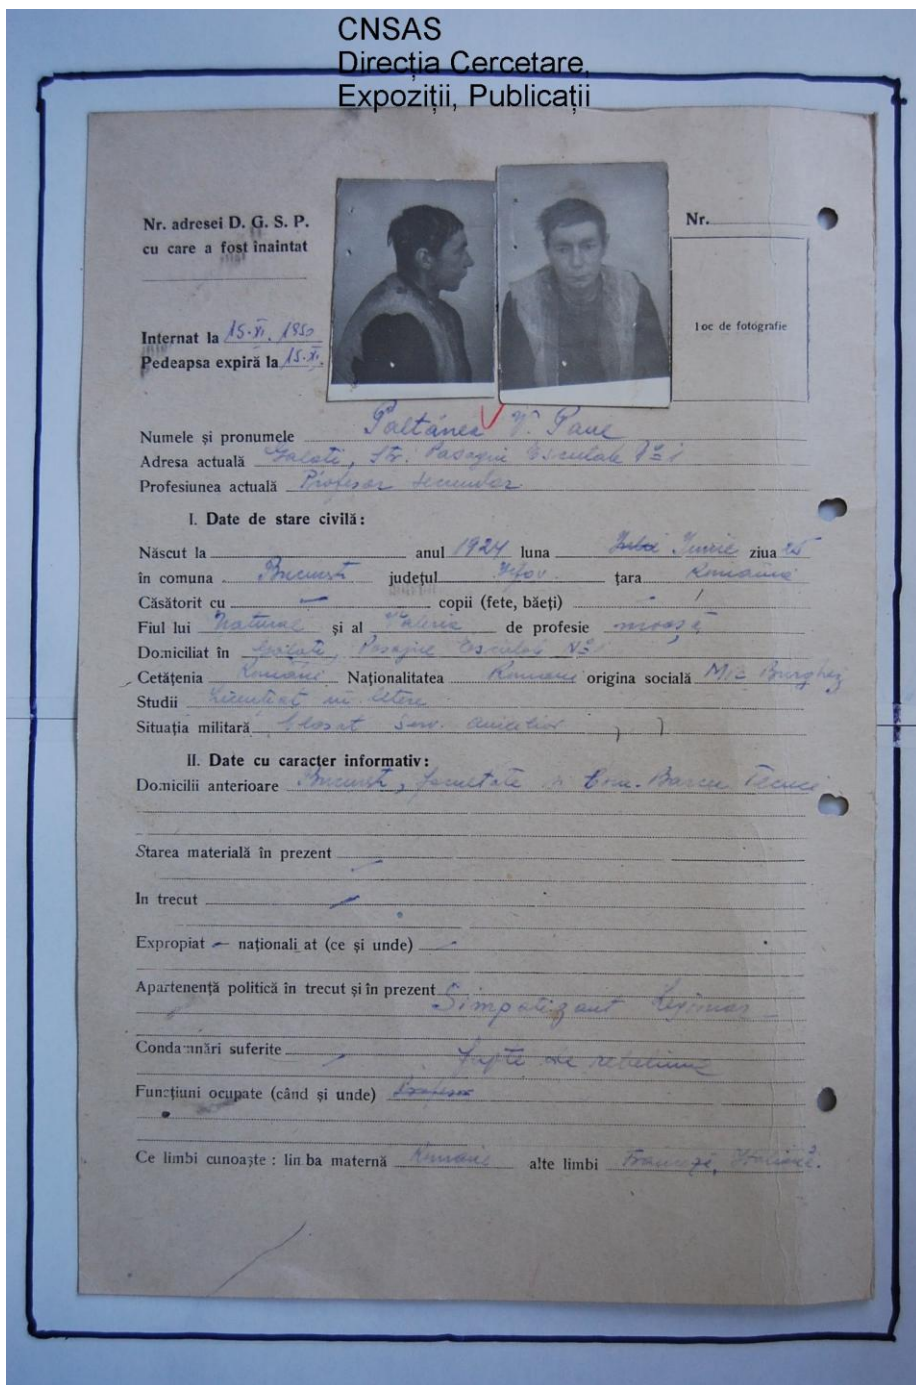 CNSAS
Direcția Cercetare,
Expoziții, Publicații
Nr. adresei D. G. S. P.
cu care a fost înaintat
Nr.
Internat la 15.XI.1950
Pedeapsa expiră la 15.XI.
loc de fotografie
Numele și pronumele Paltánea V. Paul
Adresa actuală Galați, Str. Pasagiu Esculab No 1
Profesiunea actuală Profesor secundar
I. Date de stare civilă:
Născut la anul 1924 luna Iunie ziua 25
în comuna București județul Ilfov țara România
Căsătorit cu — copii (fete, băeți) —
Fiul lui Natural și al Valeria de profesie moașă
Domiciliat în Galați, Pasajul Esculab No 1
Cetățenia Română Naționalitatea Română origina socială Mic Burghez
Studii Licențiat în litere
Situația militară
II. Date cu caracter informativ:
Domicilii anterioare București, facultate Com. Barcea Tecuci
Starea materială în prezent —
In trecut —
Expropiat — naționali at (ce și unde) —
Apartenență politică în trecut și în prezent Simpatizant Legionar
Condamnări suferite — fapte de rebeliune
Funcțiuni ocupate (când și unde) Profesor
Ce limbi cunoaște : limba maternă Română alte limbi Franceză, Italiană.